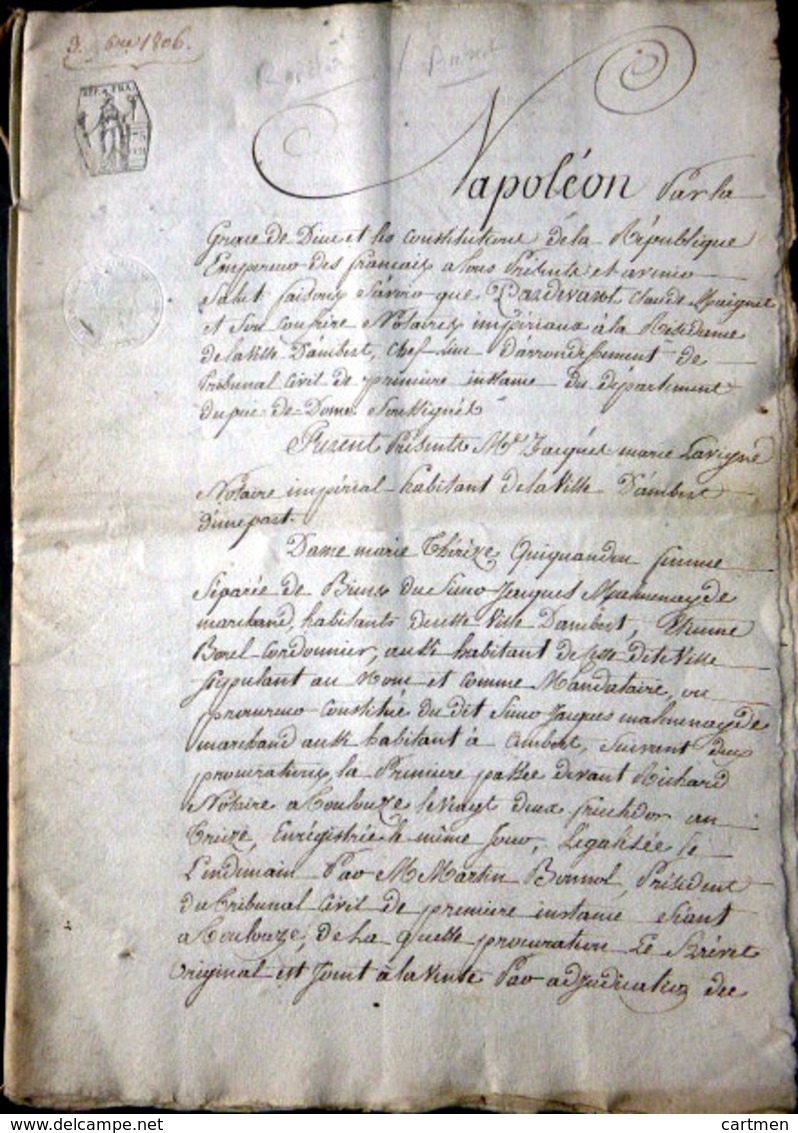 3. 6bre 1806.
REP. FRA.
Napoléon Par la
Grace de Dieu et les constitutions de la République
Empereur des francais, a tous Présents et avenir
Salut faisons Savoir que Pardevant Claude Maignet
et Son Confrère Notaires impériaux à la Résidence
de la Ville D'ambert, chef lieu D'arrondissement de
Tribunal Civil de première instance du département
du puy-de-Dome Soussignés
Furent Présents Mr. Jacques marie Lavigne
Notaire impérial habitant de la Ville D'ambert
d'une part.
Dame marie Thérèze Quiquandon femme
Séparée de Biens du Sieur Jacques Malmenayde
marchand, habitants de cette Ville Dambert, Etienne
Borel Cordonnier, aussi habitant de cette dite Ville
stipulant au Nom et comme Mandataire, ou
procureur constitué du dit Sieur Jacques malmenayde
marchand aussi habitant à Ambert, suivant deux
procurations, la Première passée devant Richard
Notaire a Toulouze le vingt deux fructidor an
Treize, Enrégistrée le même jour, Légalisée le
Lendemain Par M Martin Bonnol, Président
du Tribunal Civil de première instance séant
a Toulouze, de La quelle procuration Le Brévet
Original est Joint à la vente Par adjudication des
cartmen